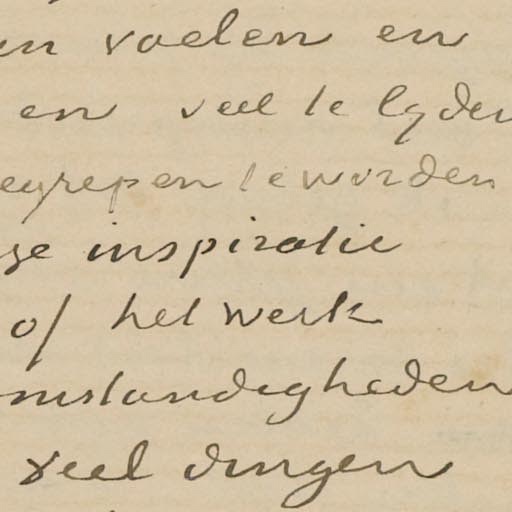 en voelen en
en veel te lyden
egrepen te worden
ge inspiratie
of het werk
mstandigheden
veel dingen